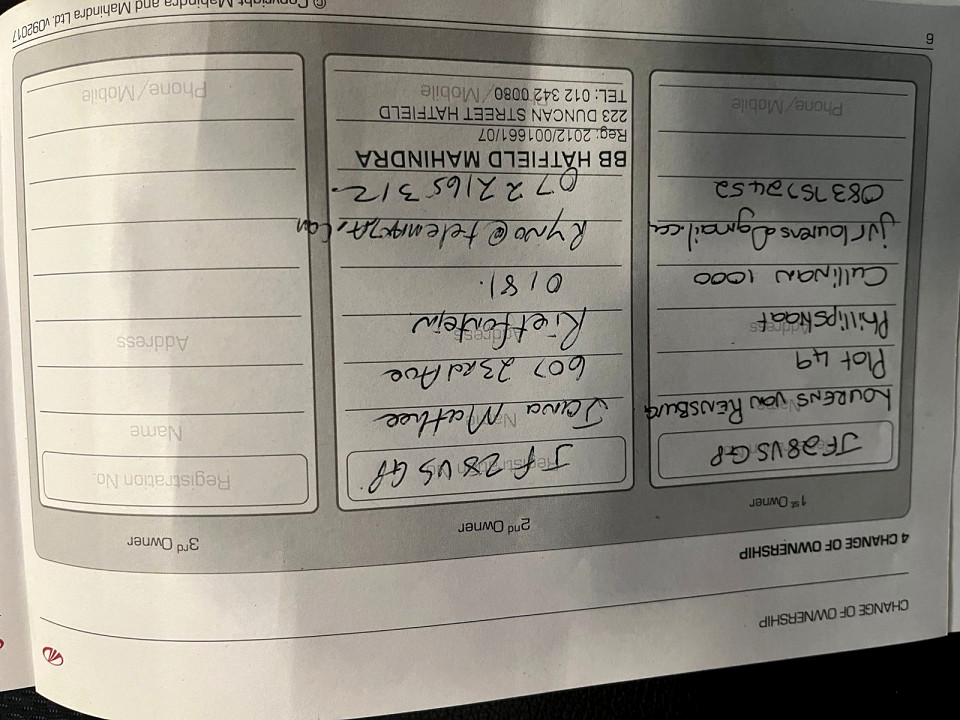 CHANGE OF OWNERSHIP
4 CHANGE OF OWNERSHIP
1st Owner
Registration No.
JF28VSGP
Name
LOURENS VAN RENSBURG
Plot 49
Address
Cullinan 1000
0837572452
Phone/Mobile
2nd Owner
Registration No.
JF 28 VS GP
Name
607 23rd Ave
Address
Rietfontein
0181.
0722165312.
BB HATFIELD MAHINDRA
Reg: 2012/001661/07
223 DUNCAN STREET HATFIELD
TEL: 012 342 0080
Phone/Mobile
3rd Owner
Registration No.
Name
Address
Phone/Mobile
6
© Copyright Mahindra and Mahindra Ltd. v092017